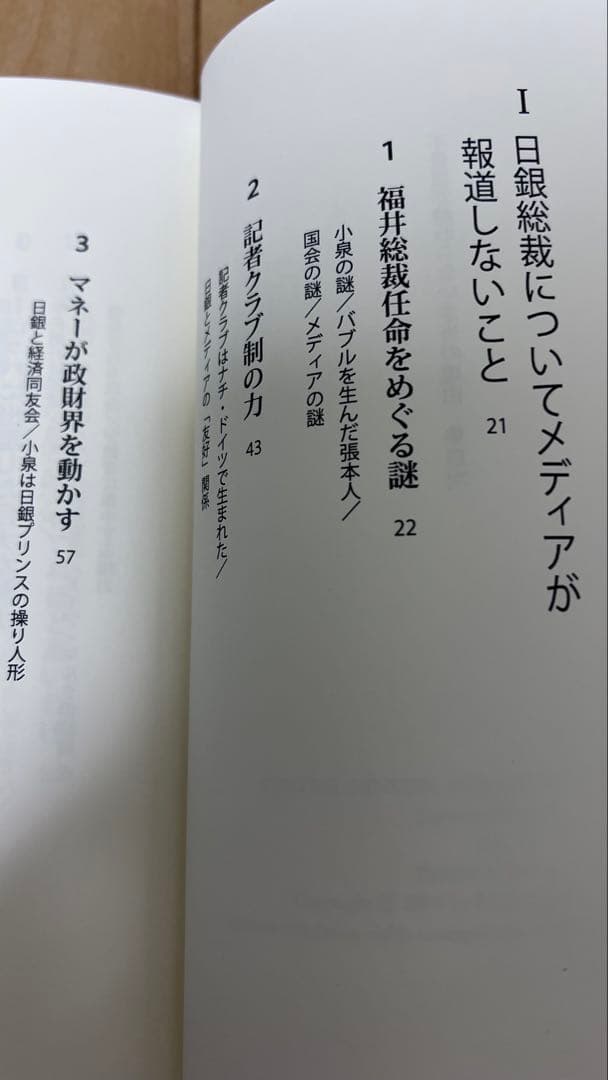 I 日銀総裁についてメディアが
報道しないこと 21
1 福井総裁任命をめぐる謎 22
小泉の謎／バブルを生んだ張本人／
国会の謎／メディアの謎
2 記者クラブ制の力 43
記者クラブはナチ・ドイツで生まれた／
日銀とメディアの「友好」関係
3 マネーが政財界を動かす 57
日銀と経済同友会／小泉は日銀プリンスの操り人形